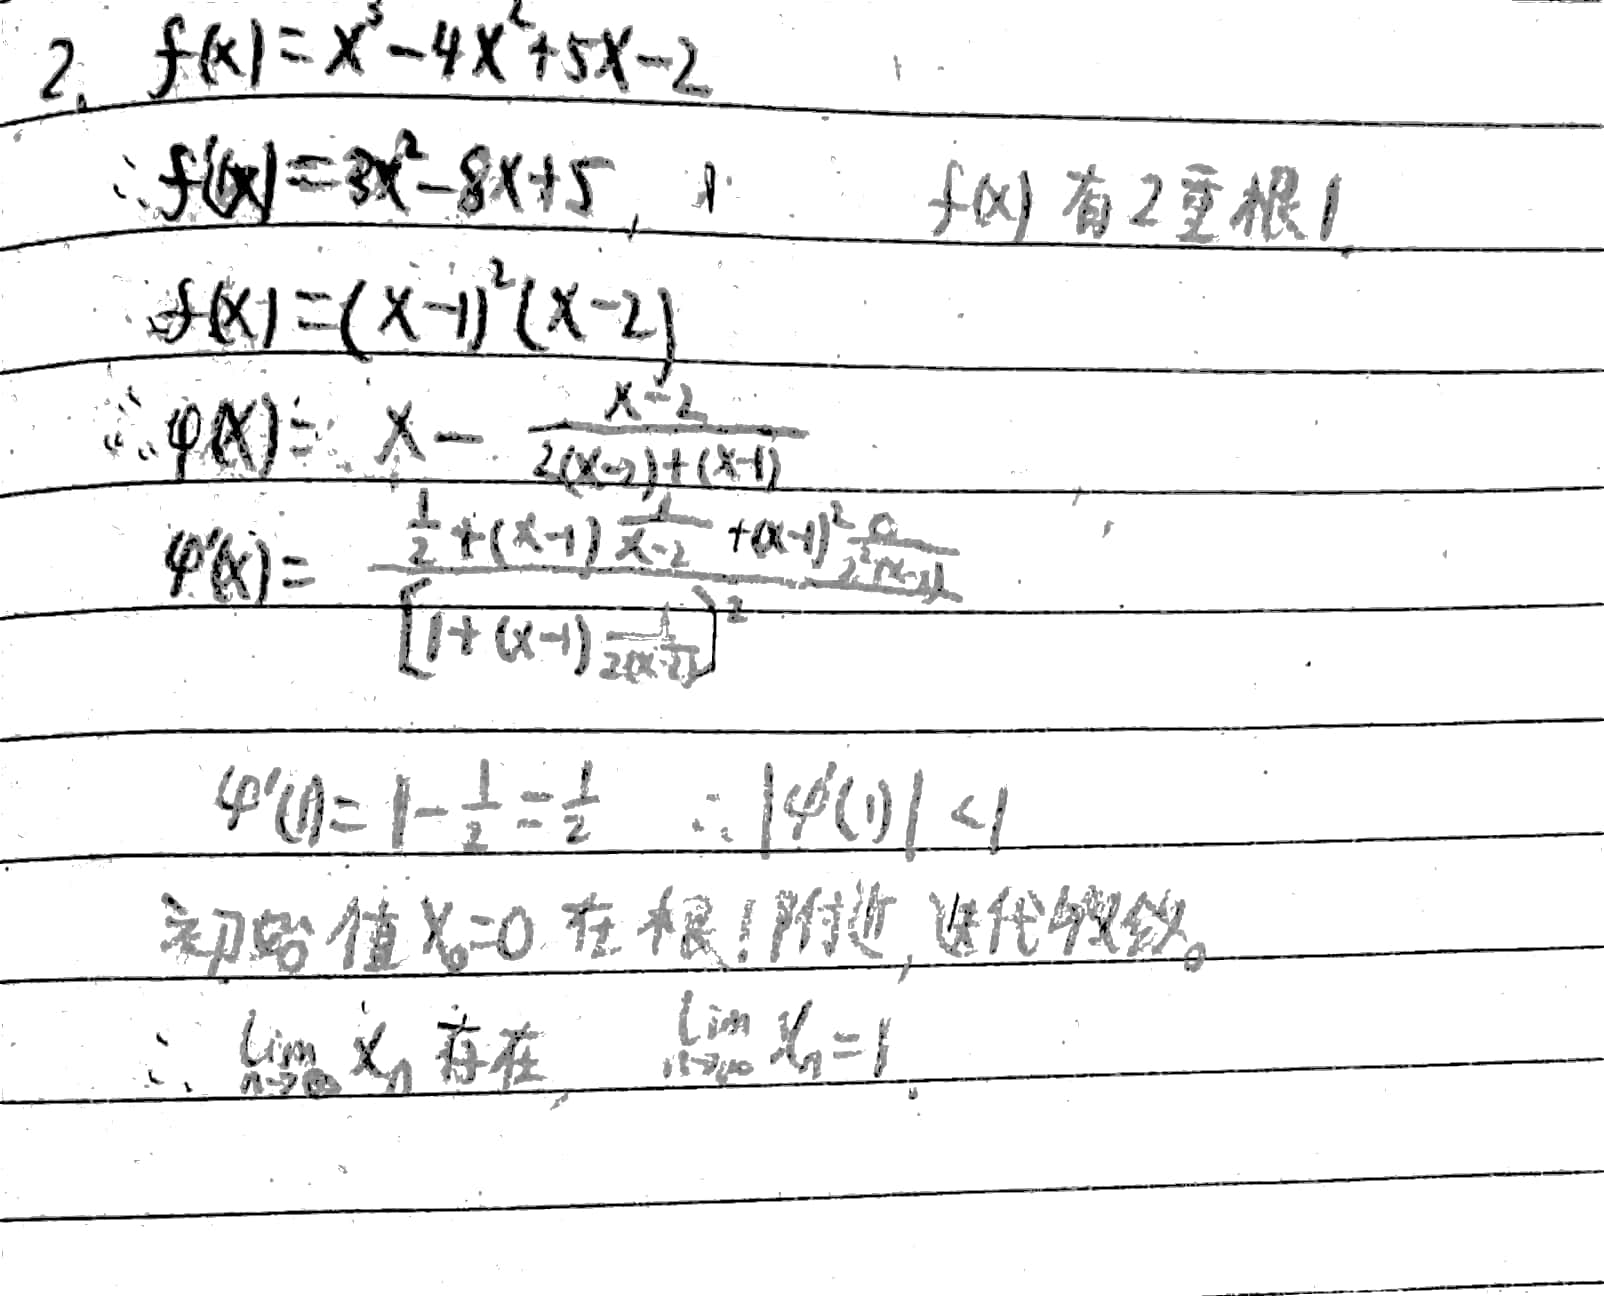 2. f(x)=x³-4x²+5x-2
∴f'(x)=3x²-8x+5, f(x)有2重根1
f(x)=(x-1)²(x-2)
∴φ(x)= x - \frac{x-2}{2(x-2)+(x-1)}
φ'(x)= \frac{\frac{1}{2}+(x-1)\frac{1}{x-2}+(x-1)²\frac{0}{2²(x-2)}}{[1+(x-1)\frac{1}{2(x-2)}]²}
φ'(1)=1-\frac{1}{2}=\frac{1}{2} ∴|φ'(1)|<1
初始值x₀=0在根1附近,迭代收敛。
∴ \lim_{n→∞} x_n 存在 \lim_{n→∞} x_n=1